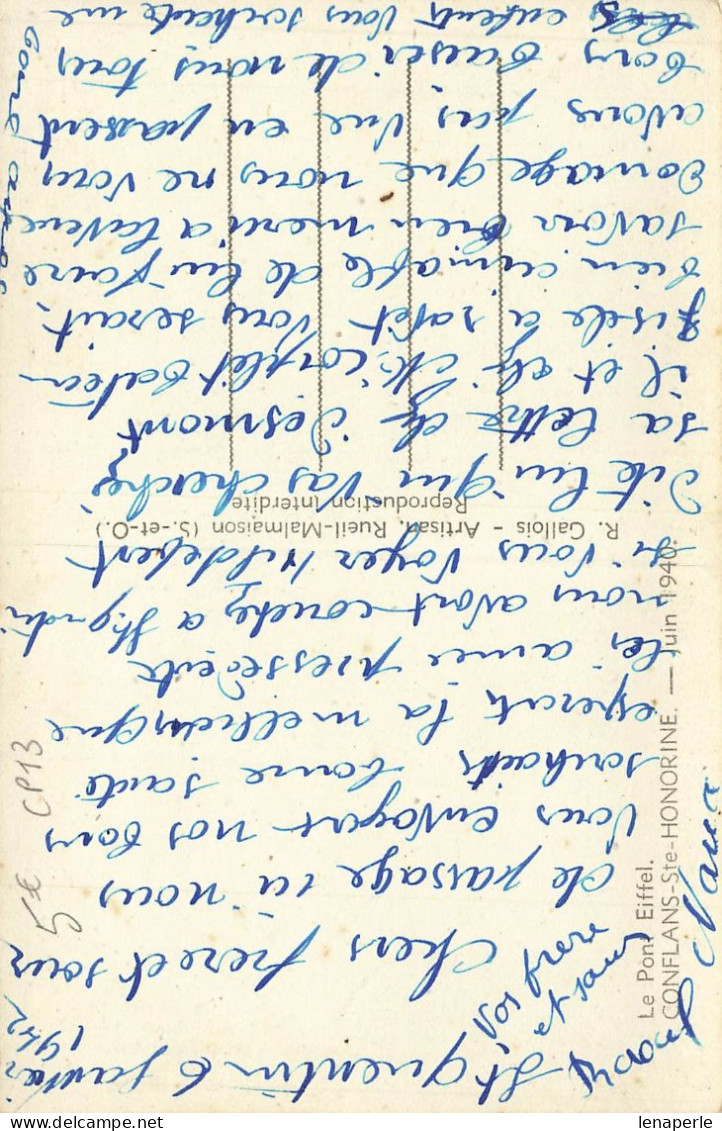 St Quentin 6 Janvier
1942
Chers frere et sœur
de passage ici nous
Vous envoyent nos bons
souhaits bonne santé
esperent la meilleur que
les année pressedente
nous avont couché a
si vous voyer Hildebert
Dite lui qui vas cherché
sa lettre ché Desmont
il et ché Mr complet
Gisele a Vous serait
bien aimable de lui faire
savoir bien merci a
Domage que nous ne vous
avons pas vue en passent
bons baiser de nous tous
les enfents Vous souhaite une
bonne année
Vos frere
et sœur
Raoul Maria
Le Pont Eiffel.
CONFLANS-Ste-HONORINE. — Juin 1940.
R. Gallois - Artisan, Rueil-Malmaison (S.-et-O.)
Reproduction Interdite
5€ CP13
lenaperle